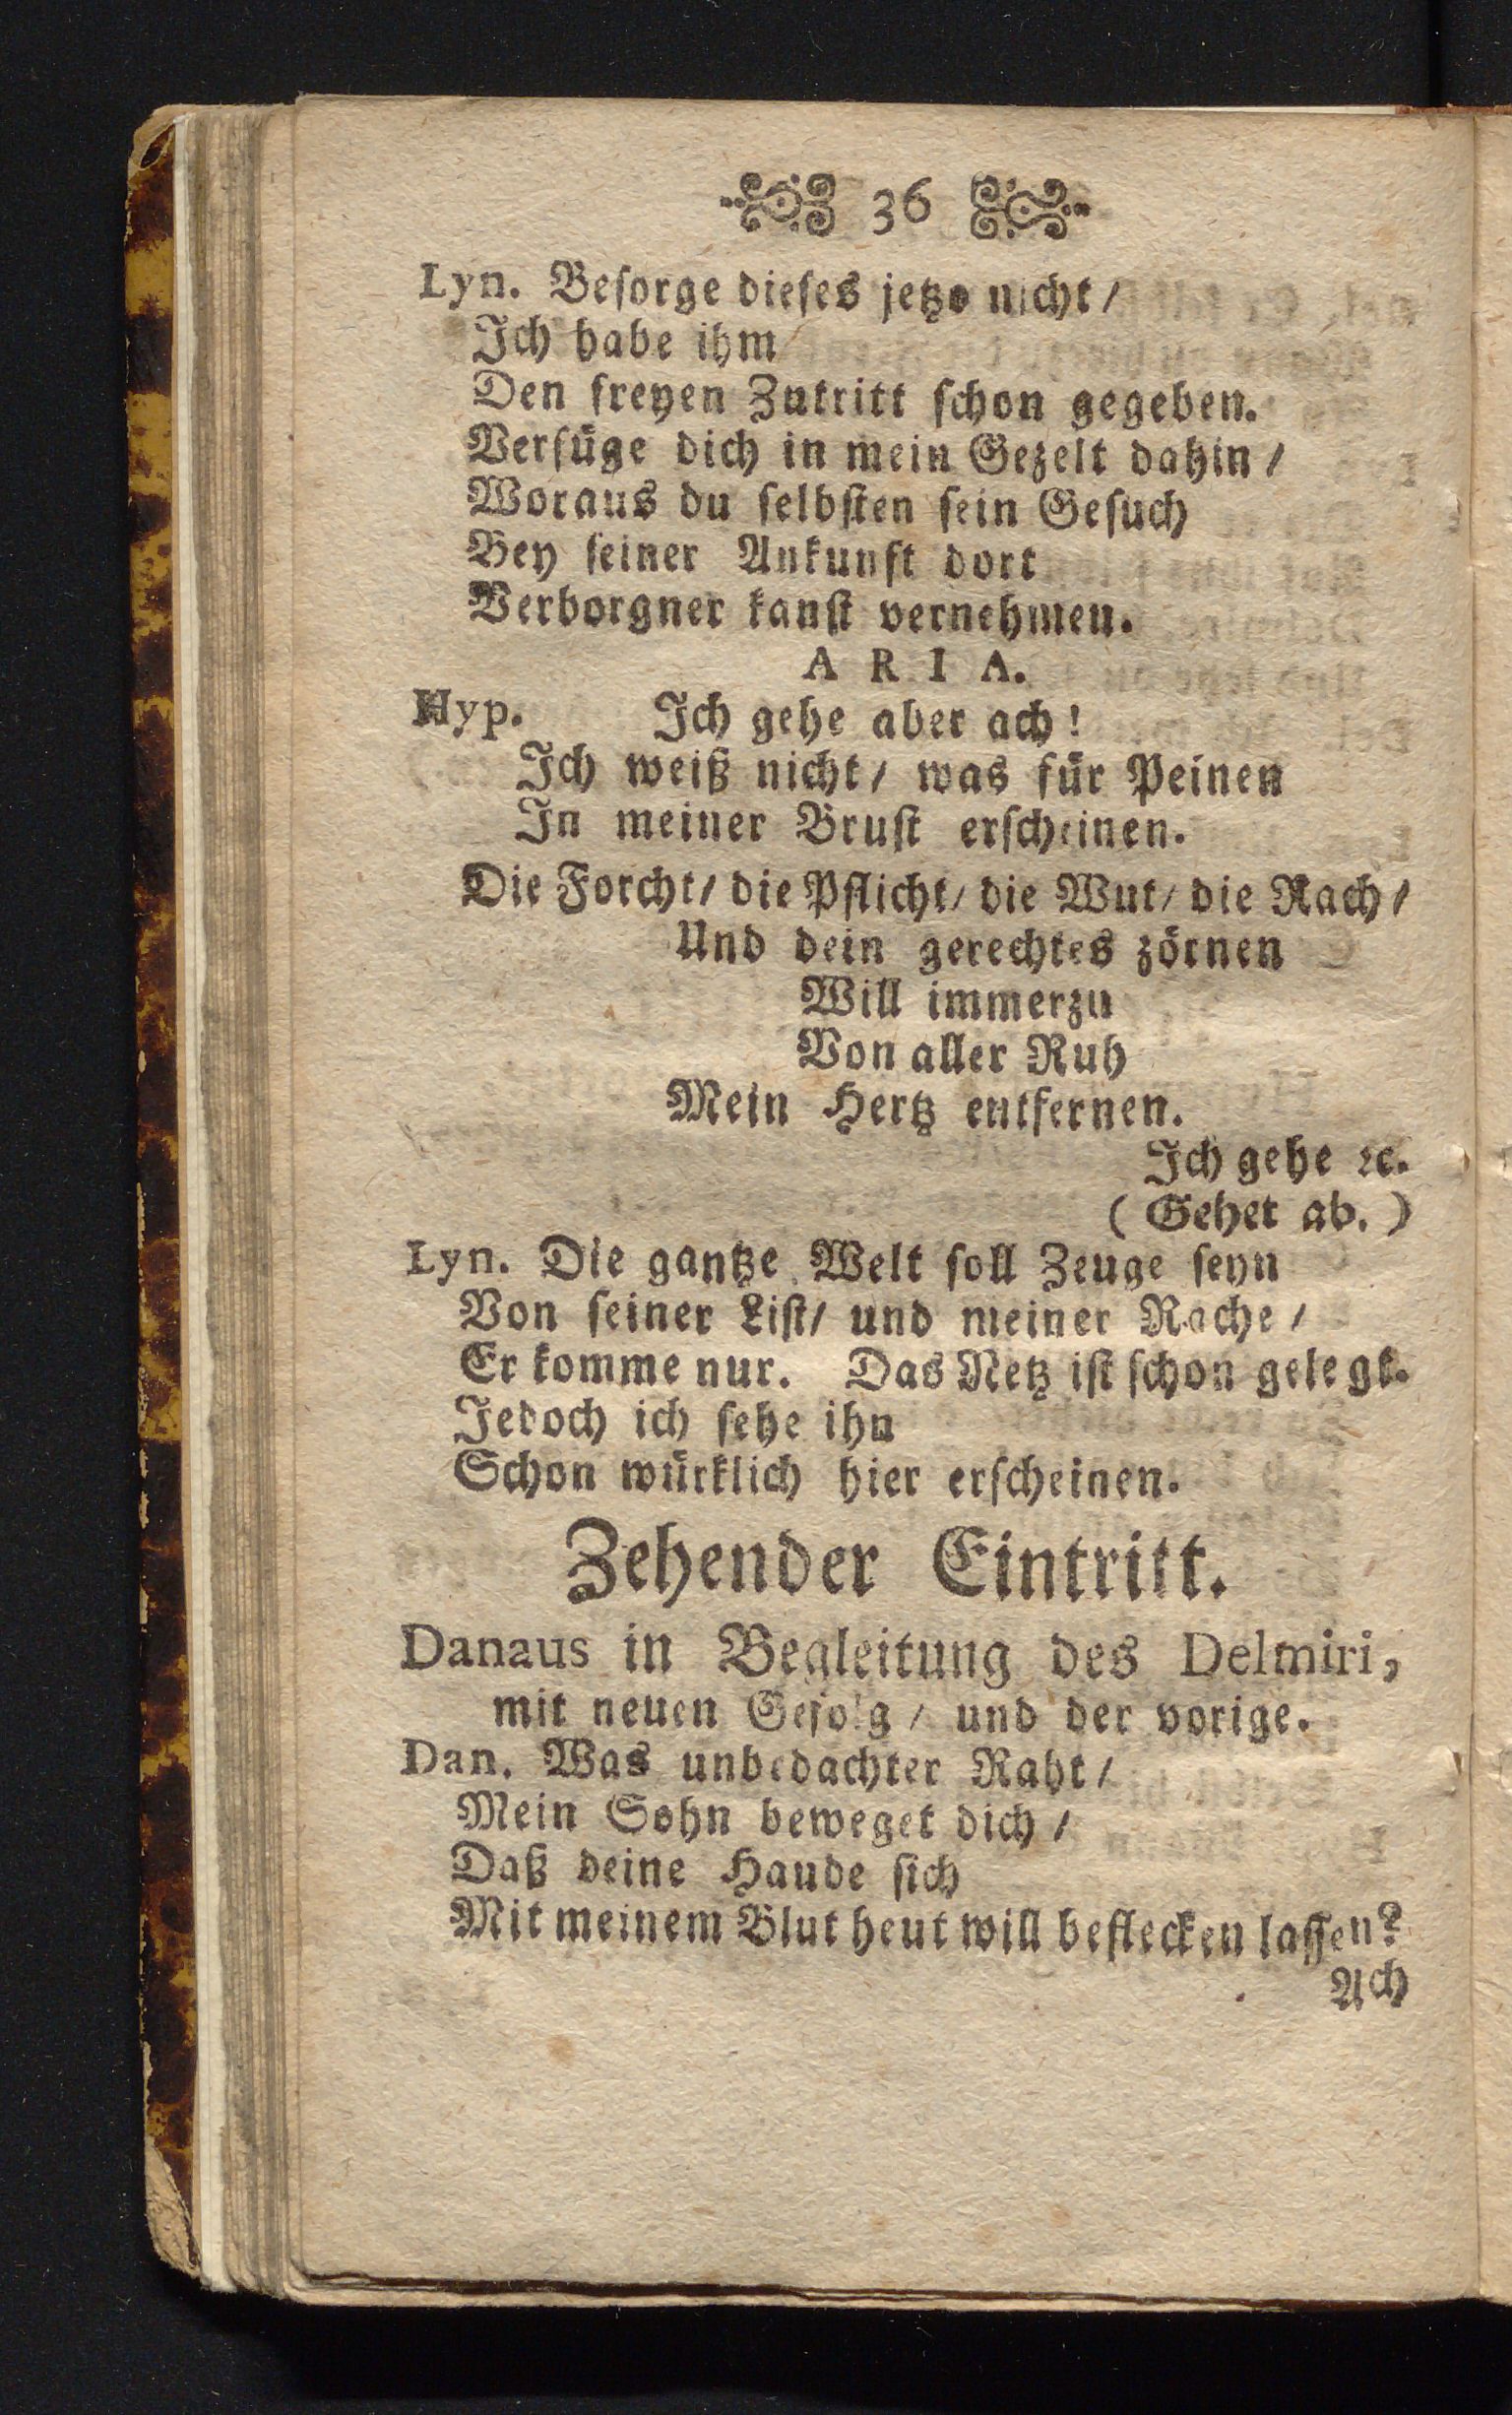 36
Lyn. Beſorge dieſes jetzo nicht /
Ich habe ihm
Den freyen Zutritt ſchon gegeben.
Verfüge dich in mein Gezelt dahin /
Woraus du ſelbſten ſein Geſuch
Bey ſeiner Ankunft dort
Verborgner kanſt vernehmen.
A R I A.
Hyp. Ich gehe aber ach!
Ich weiß nicht / was für Peinen
In meiner Bruſt erſcheinen.
Die Forcht / die Pflicht / die Wut / die Rach /
Und dein gerechtes zörnen
Will immerzu
Von aller Ruh
Mein Hertz entfernen.
Ich gehe ꝛc.
( Gehet ab. )
Lyn. Die gantze Welt ſoll Zeuge ſeyn
Von ſeiner Liſt / und meiner Rache /
Er komme nur. Das Netz iſt ſchon gelegt.
Jedoch ich ſehe ihn
Schon würklich hier erſcheinen.
Zehender Eintritt.
Danaus in Begleitung des Delmiri,
mit neuen Gefolg / und der vorige.
Dan. Was unbedachter Raht /
Mein Sohn beweget dich /
Daß deine Haude ſich
Mit meinem Blut heut will beflecken laſſen?
Ach